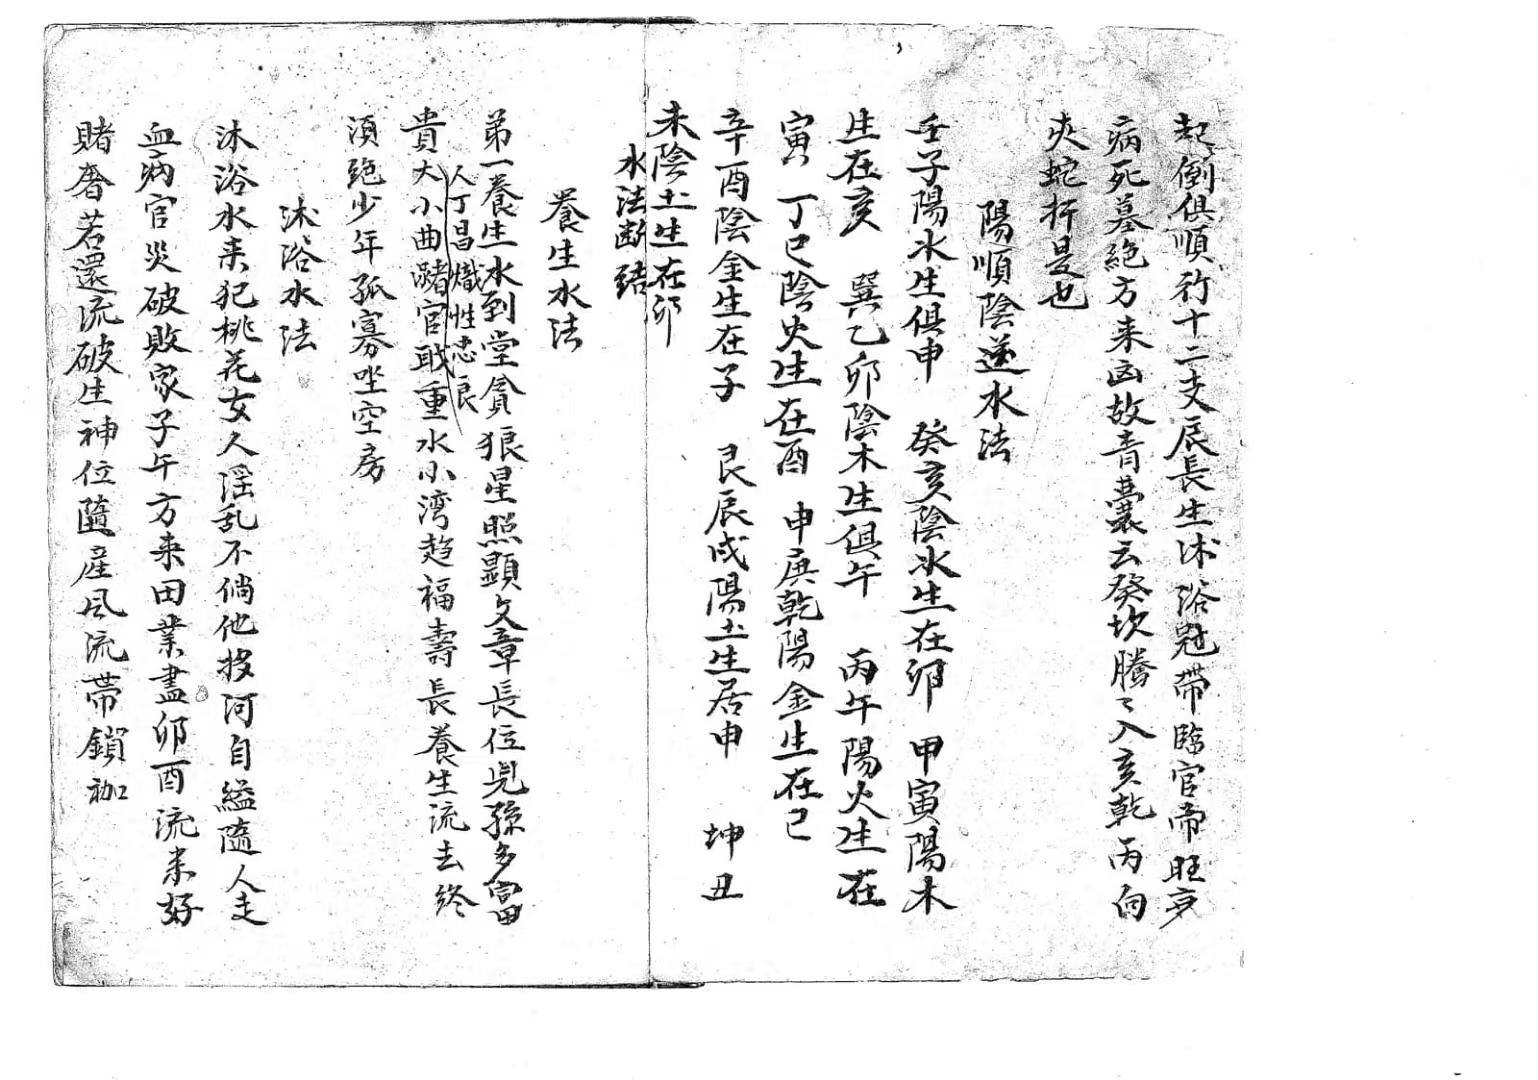 起倒俱順行十二支辰長生沐浴冠帶臨官帝旺衰
病死墓絶方来凶故青囊云癸坎騰〻入亥乾丙向
夾蛇折是也
陽順陰逆水法
壬子陽水生俱申　癸亥陰水生在卯　甲寅陽木
生在亥　巽乙卯陰木生俱午　丙午陽火生在
寅　丁巳陰火生在酉　申庚乾陽金生在巳
辛酉陰金生在子　艮辰戌陽土生居申　坤丑
未陰土生在卯
水法断結
養生水法
第一養生水到堂貪狼星照顯文章長位児孫多富
人丁昌熾性忠良
貴大小曲瀦官職重水小湾趋福壽長養生流去終
須絶少年孤寡坐空房
沐浴水法
沐浴水来犯桃花女人淫乱不倘他投河自縊隨人走
血病官災破敗家子午方来田業盡卯酉流来好
賭奢若還流破生神位隨産風流帶鎖枷